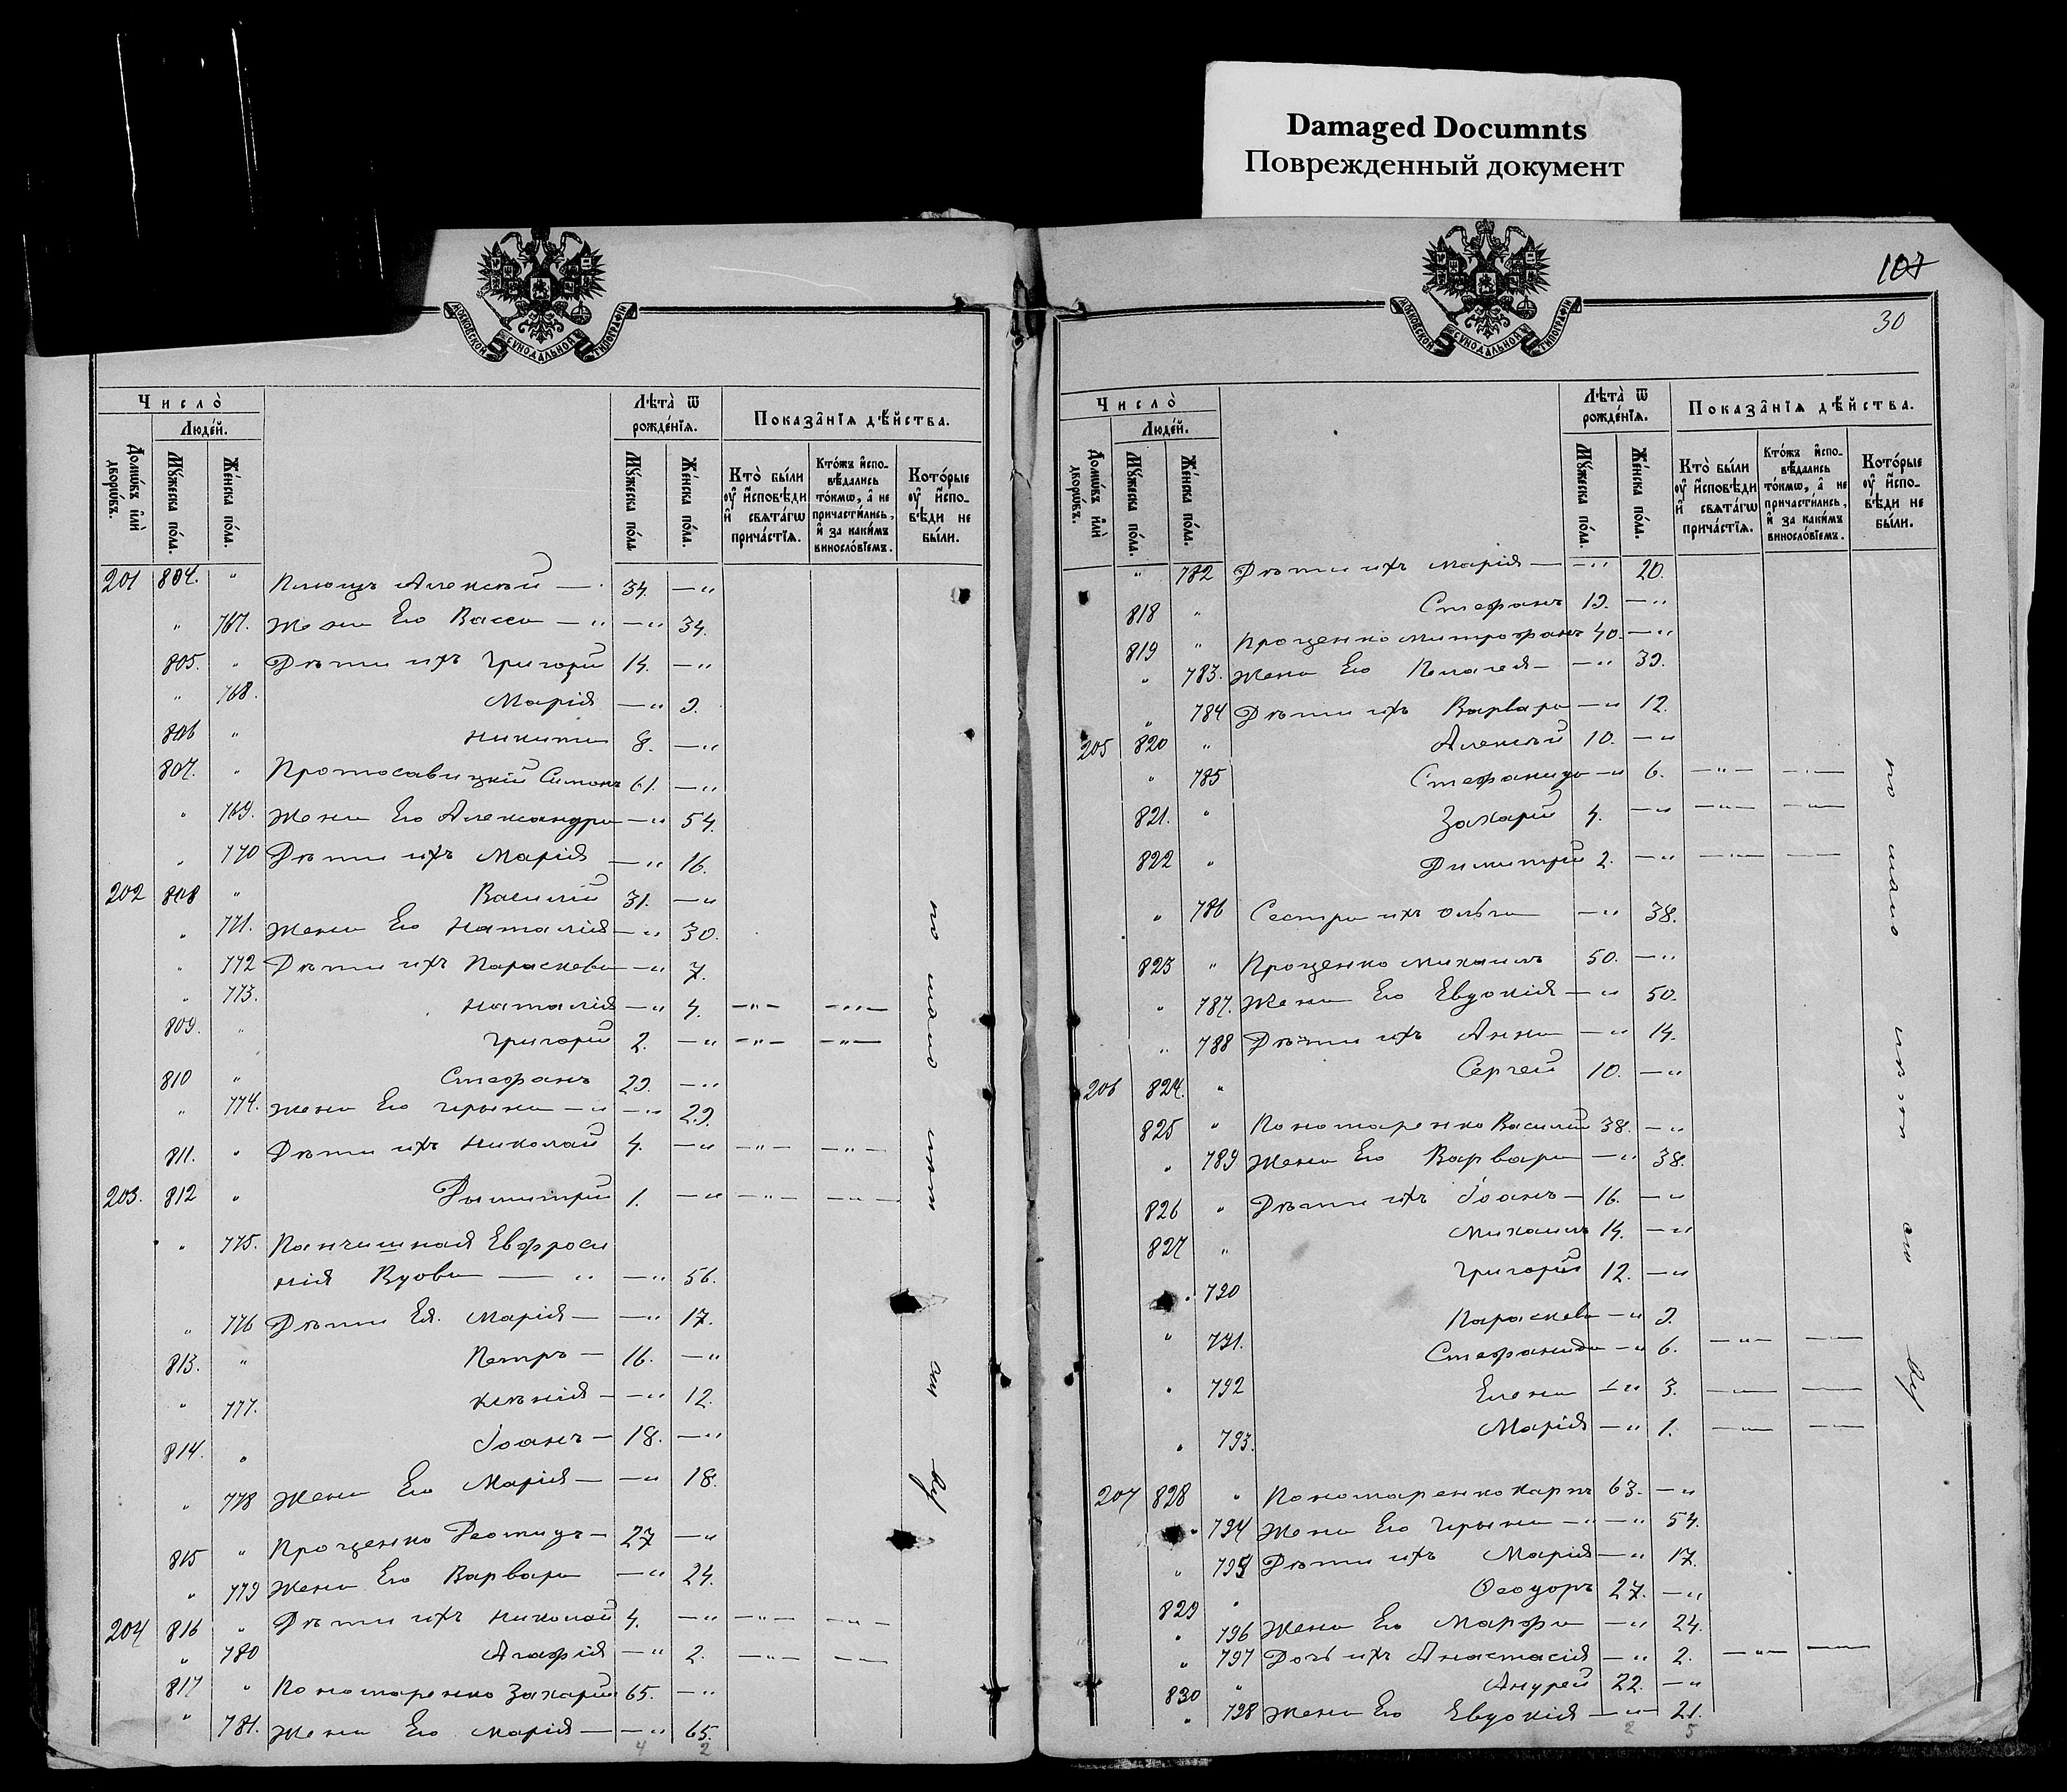 Damaged Documnts
Поврежденный документ
МОСКОВСКОЙ СѴНОДАЛЬНОЙ ТИПОГРАФІИ
Число̀
Люде́й.
Домѡ́въ и҆лѝ дворѡ́въ.
Мꙋ́жеска по́ла.
Же́нска по́ла.
Лѣта̀ ѿ рожде́нїѧ.
Мꙋ́жеска по́ла
Же́нска по́ла.
Показа̑нїѧ дѣ́йства.
Кто̀ бы́ли оу҆ и҆сповѣди и҆ свѧта́гѡ прича́стїѧ.
Кто́жъ и҆спо- вѣдались то́кмѡ, а҆ не причасти́лись, и҆ за каки́мъ винослѡ́вїемъ.
Кото́рые оу҆ и҆спо- вѣди не бы́ли.
201 804. " Алексѣй — 34. — "
" 767. Жена Его Васса — " — " 34.
805. " Дѣти ихъ Григорій 14. — "
" 768. Марія — " 9.
806 " Никита 8. — "
807. " Симонъ 61. — "
" 769. Жена Его Александра — " 54.
" 770 Дѣти ихъ Марія — " 16.
202 808 " Василій 31. — "
" 771. Жена Его Наталія — " 30.
" 772 Дѣти ихъ Параскева — " 7.
" 773. Наталія — " 4. — " — — " —
809. " Григорій 2. — " — " — — " —
810 " Стефанъ 29. — "
" 774. Жена Его Ирина — " — " 29.
811. " Дѣти ихъ Николай 4. — " — " — — " —
203. 812 " Дымитрій 1. — " — " — — " —
" 775. Евфроси
нія Вдова — " — " 56.
" 776 Дѣти Ея. Марія — — " 17.
813. " Петръ — 16. — "
" 777. Ксѣнія — — " 12.
814. " Іоанъ — 18. — "
" 778 Жена Его Марія — — " 18.
815 " Проценко 27 — "
" 779 Жена Его Варвара — " 24.
204 816 " Дѣти ихъ Николай 4. — " — " — — " —
" 780 Агафія — " 2. — " — — —
817 " Пономаренко Захарій 65. — "
" 781. Жена Его Марія — — " 65.
4 2
107
30
МОСКОВСКОЙ СѴНОДАЛЬНОЙ ТИПОГРАФІИ
Число̀
Люде́й.
Домѡ́въ и҆лѝ дворѡ́въ.
Мꙋ́жеска по́ла.
Же́нска по́ла.
Лѣта̀ ѿ рожде́нїѧ.
Мꙋ́жеска по́ла.
Же́нска по́ла.
Показа̑нїѧ дѣ́йства.
Кто̀ бы́ли оу҆ и҆сповѣди и҆ свѧта́гѡ прича́стїѧ.
Кто́жъ и҆спо- вѣдались то́кмѡ, а҆ не причасти́лись, и҆ за каки́мъ винослѡ́вїемъ.
Кото́рые оу҆ и҆спо- вѣди не бы́ли.
" 782 Дѣти ихъ Марія — — " 20.
818 " Стефанъ 19. — "
819 " Проценко Митрофанъ 40. — "
" 783. Жена Его Пелагея — — " 39.
" 784 Дѣти ихъ Варвара — " 12.
205 820 " Алексѣй 10. — "
" 785 Стефанида — " 6. — " — — " —
821. " Захарій 4. — " — " — — " —
822 " Димитрій 2. — " — " — — —
" 786 Сестра ихъ Ольга — " 38.
823 " Проценко Михаилъ 50. — "
" 787. Жена Его Евдокія — " 50.
" 788 Дѣти ихъ Анна — " 14.
206 824. " Сергей 10. — "
825 " Пономаренко Василій 38. — "
" 789 Жена Его Варвара — " 38.
826 " Дѣти ихъ Іоанъ — 16. — "
827 " Михаилъ 14. — "
Григорій 12. — "
790 Параскева — " 9.
" 791. Стефанида — " 6. — " — — " —
" 792 Елена — " 3. — " — — —
" 793. Марія — " 1. — " — — —
207 828 " Пономаренко Карпъ 63. — "
" 794 Жена Его Ирина — " — " 54.
" 795 Дѣти ихъ Марія — " 17.
829 " Ѳеодоръ 27. — "
" 796 Жена Его Марфа — " 24.
" 797 Дочь ихъ Анастасія — " 2. — " — — —
830 " Андрей 22. — "
" 798 Жена Его Евдокія — " 21.
2 5